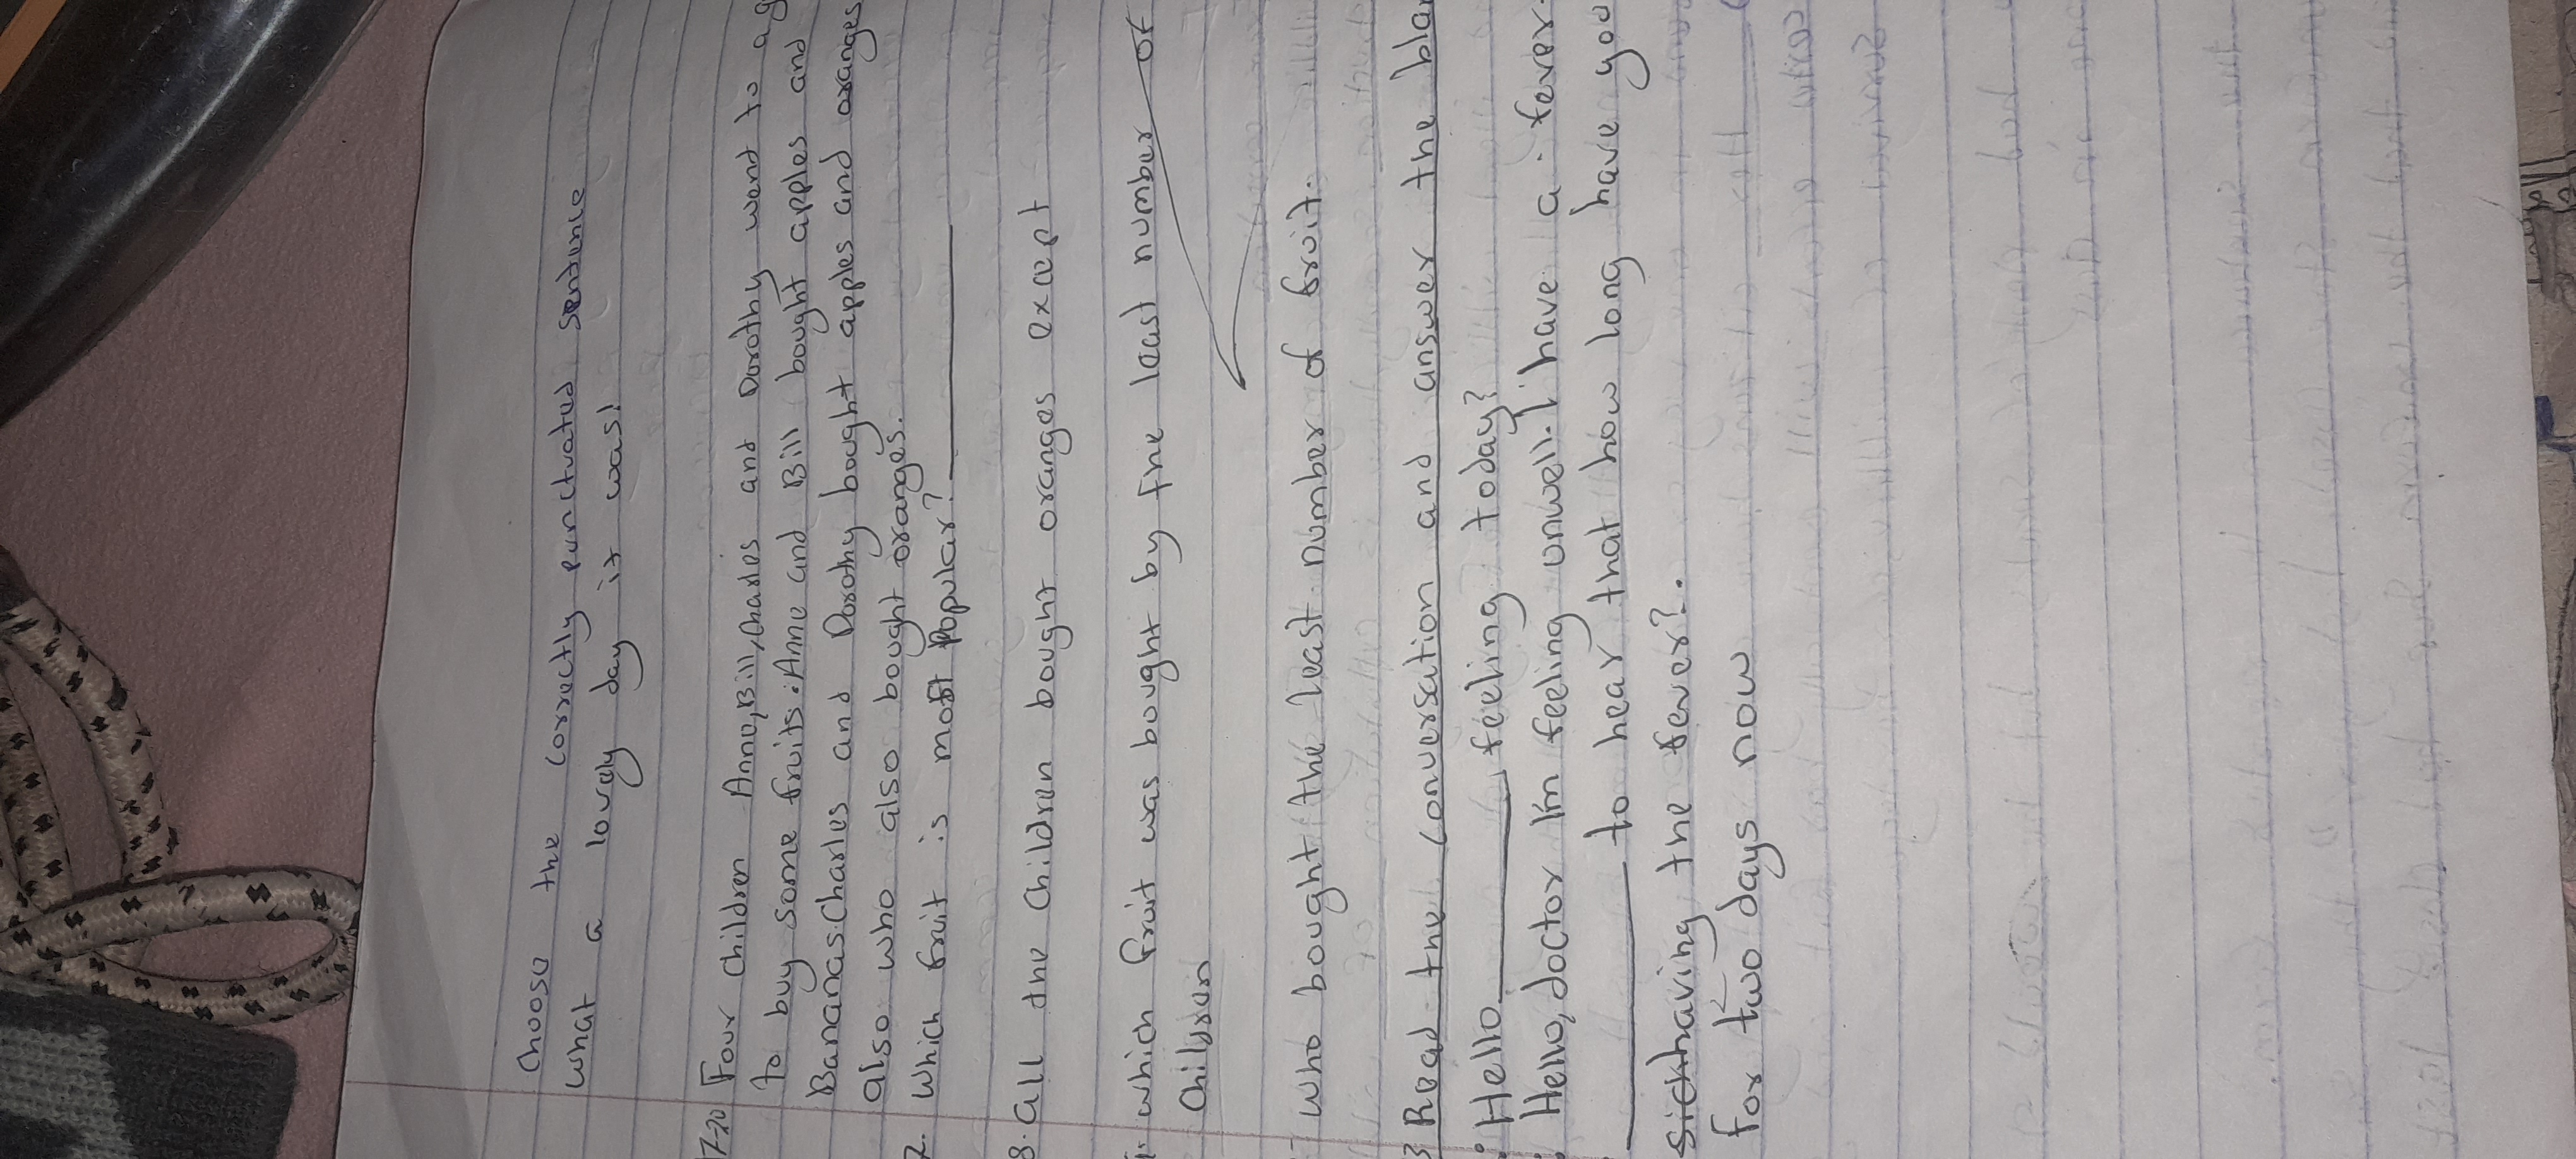 Choose the correctly punctuated sentence
What a lovely day it was!
17-20 Four children Anne, Bill, Charles and Dorothy went to a g
to buy some fruits. Anne and Bill bought apples and
Bananas. Charles and Dorothy bought apples and oranges
also who also bought oranges.
7. Which fruit is most Popular?
8. All the children bought oranges except
which fruit was bought by the least number of
Children
who bought the least number of fruit.
3 Read the conversation and answer the blan
: Hello ______, feeling today?
: Hello, doctor I'm feeling unwell. I have a fever.
: ______ to hear that how long have you
having the fever?.
For two days now